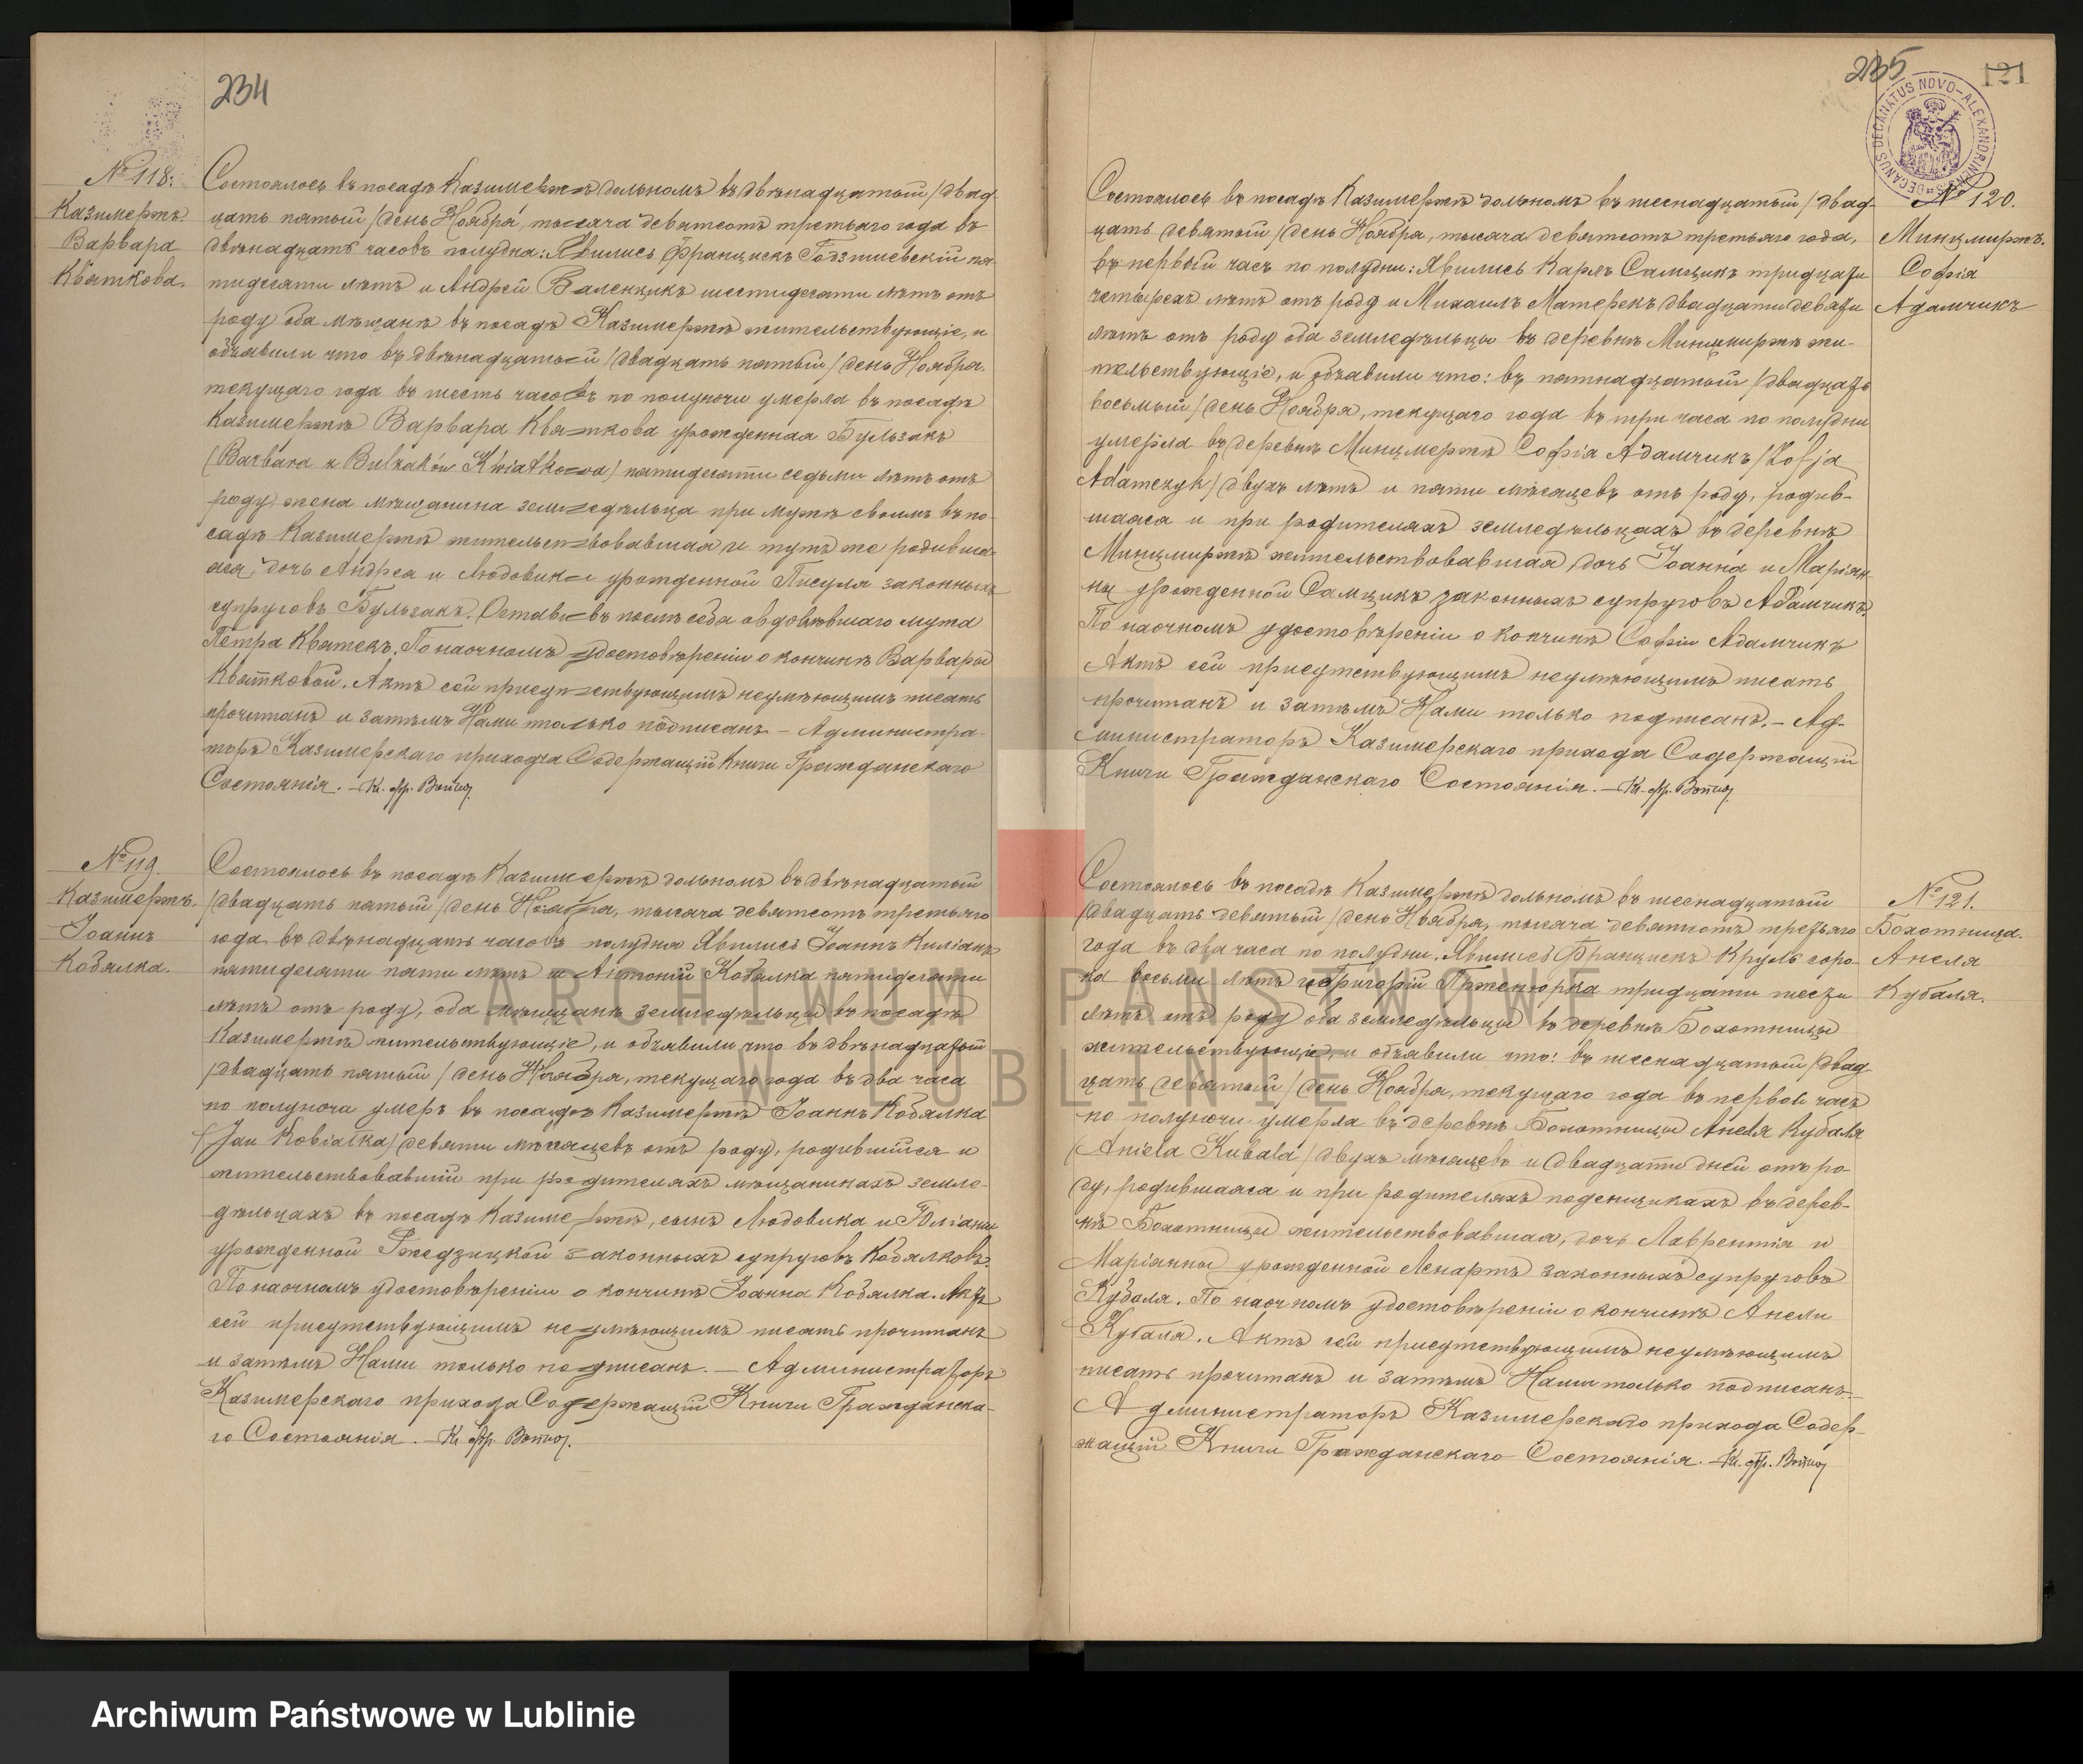 234
№ 118.
Казимержъ
Варвара
Квяткова.
Состоялось въ посадѣ Казимержѣ дольномъ въ двѣнадцатый /двад-
цать пятый/ день Ноября, тысяча девятсотъ третьяго года въ
двѣнадцать часовъ полудня: Явились Францискъ Годзишевскій пя-
тидесяти лѣтъ и Андрей Валенцикъ шестидесяти лѣтъ отъ
роду оба мѣщане въ посадѣ Казимержѣ жительствующіе, и
объявили что въ двѣнадцатый /двадцать пятый/ день Ноября
текущаго года въ шесть часовъ по полуночи умерла въ посадѣ
Казимержѣ Варвара Квяткова урожденная Бульзакъ
(Barbara z Bulzaków Kwiatkowa) пятидесяти седьми лѣтъ отъ
роду, жена мѣщанина земледѣльца при мужѣ своимъ въ по-
садѣ Казимержѣ жительствовавшая и тутъ же родивша-
яся, дочь Андрея и Людовики урожденной Писуля законныхъ
супруговъ Бульзакъ. Оставивъ послѣ себя овдовѣвшаго мужа
Петра Квятекъ. По наочномъ удостовѣреніи о кончинѣ Варвары
Квятковой. Актъ сей присутствующимъ неумѣющимъ писать
прочитанъ и затѣмъ Нами только подписанъ. — Администра-
торъ Казимерскаго прихода Содержащій Книги Гражданскаго
Состоянія. —
№ 119.
Казимержъ.
Іоаннъ
Кобялка.
Состоялось въ посадѣ Казимержѣ дольномъ въ двѣнадцатый
/двадцать пятый/ день Ноября, тысяча девятсотъ третьяго
года въ двѣнадцать часовъ полудня Явились Іоаннъ Киліанъ
пятидесяти пяти лѣтъ и Антоній Кобялка пятидесяти
лѣтъ отъ роду, оба мѣщане земледѣльцы въ посадѣ
Казимержѣ жительствующіе, и объявили что въ двѣнадцатый
/двадцать пятый/ день Ноября, текущаго года въ два часа
по полуночи умеръ въ посадѣ Казимержѣ Іоаннъ Кобялка
(Jan Kobiałka) девяти мѣсяцевъ отъ роду, родившійся и
жительствовавшій при родителяхъ мѣщанинахъ земле-
дѣльцахъ въ посадѣ Казимержѣ, сынъ Людовика и Юліанны
урожденной Гжедзицкой законныхъ супруговъ Кобялковъ.
По наочномъ удостовѣреніи о кончинѣ Іоанна Кобялка. Актъ
сей присутствующимъ неумѣющимъ писать прочитанъ
и затѣмъ Нами только подписанъ. — Администраторъ
Казимерскаго прихода Содержащій Книги Гражданска-
го Состоянія. —
235
121
DECANUS DECANATUS NOVO-ALEXANDRINENSIS
№ 120.
Минцмиржъ.
Софія
Адамчикъ
Состоялось въ посадѣ Казимержѣ дольномъ въ шеснадцатый /двад-
цать девятый/ день Ноября, тысяча девятсотъ третьяго года,
въ первый часъ по полудни: Явились Карлъ Самцикъ тридцати
четырехъ лѣтъ отъ роду и Михаилъ Матерекъ двадцати девяти
лѣтъ отъ роду оба земледѣльцы въ деревнѣ Минцмиржѣ жи-
тельствующіе, и объявили что: въ пятнадцатый /двадцать
восьмый/ день Ноября, текущаго года въ три часа по полудни
умерла въ деревнѣ Минцмержѣ Софія Адамчикъ /Zofja
Adamczyk/ двухъ лѣтъ и пяти мѣсяцевъ отъ роду, родив-
шаяся и при родителяхъ земледѣльцахъ въ деревнѣ
Минцмиржѣ жительствовавшая, дочь Іоанна и Маріан-
ны урожденной Самцикъ законныхъ супруговъ Адамчикъ.
По наочномъ удостовѣреніи о кончинѣ Софіи Адамчикъ
Актъ сей присутствующимъ неумѣющимъ писать
прочитанъ и затѣмъ Нами только подписанъ. — Ад-
министраторъ Казимерскаго прихода Содержащій
Книги Гражданскаго Состоянія. —
№ 121.
Бохотница.
Анеля
Кубаля.
Состоялось въ посадѣ Казимержѣ дольномъ въ шеснадцатый
/двадцать девятый/ день Ноября, тысяча девятсотъ третьяго
года въ два часа по полудни. Явились Францискъ Круль соро-
ка восьми лѣтъ и Григорій Пржепюрка тридцати шести
лѣтъ отъ роду оба земледѣльцы въ деревнѣ Бохотницы
жительствующіе, и объявили что: въ шеснадцатый /двад-
цать девятый/ день Ноября, текущаго года въ первой часъ
по полуночи умерла въ деревнѣ Бохотницы Анеля Кубаля
(Aniela Kubala/ двухъ мѣсяцевъ и двадцати дней отъ ро-
ду, родившаяся и при родителяхъ поденщикахъ въ дерев-
нѣ Бохотницы жительствовавшая, дочь Лаврентія и
Маріанны урожденной Ленартъ законныхъ супруговъ
Кубаля. По наочномъ удостовѣреніи о кончинѣ Анели
Кубаля. Актъ сей присутствующимъ неумѣющимъ
писать прочитанъ и затѣмъ Нами только подписанъ. —
Администраторъ Казимерскаго прихода Содер-
жащій Книги Гражданскаго Состоянія. —
ARCHIWUM PAŃSTWOWE
W LUBLINIE
Archiwum Państwowe w Lublinie